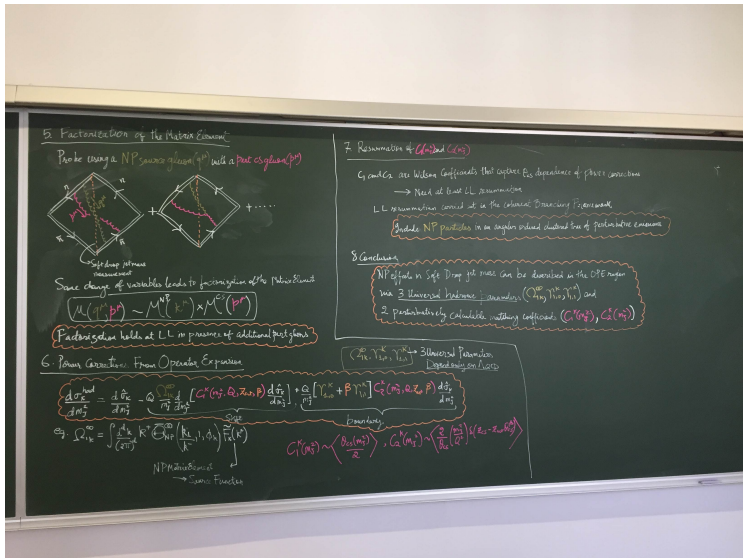 5. Factorization of the Matrix Element
Probe using a NP source gluon (q^μ) with a pert cs gluon (p^μ)
+ + .....
Soft drop jet mass
measurement
Same change of variables leads to factorization of the Matrix Element
M(q^μ, p^μ) ~ M^NP(k^μ) × M^CS(p^μ)
Factorization holds at LL in presence of additional pert gluons
6. Power Corrections From Operator Expansion
dσ_κ^had/dm_J² = dσ̂_κ/dm_J² - Q Ω_1κ^∞/m_J² d/dm_J² [C_1^κ(m_J², Q, z_cut, β) dσ̂_κ/dm_J²] + Q/m_J² [γ_{1,0}^κ + β γ_{1,1}^κ] C_2^κ(m_J², Q, z_cut, β) dσ̂_κ/dm_J²
Size boundary
eg. Ω_1κ^∞ = ∫ d^dk/(2π)^d k^+ Θ_NP(k_⊥/k^-, 1, φ_k) F̃_κ(k^μ)
NP Matrix Element
→ Source Function
C_1^κ(m_J²) ~ ⟨θ_cs(m_J²)/2⟩, C_2^κ(m_J²) ~ ⟨2/θ_cs (m_J²/Q²) δ(z_cs - z_cut θ_cs^β)⟩
(Ω_1κ^∞, γ_{1,0}^κ, γ_{1,1}^κ) → 3 Universal Parameters
Depends only on Λ_QCD
7. Resummation of C_1(m_J²) and C_2(m_J²)
C_1 and C_2 are Wilson Coefficients that capture θ_cs dependence of power corrections
→ Need at least LL resummation
LL resummation carried out in the Coherent Branching Framework
Include NP particles in an angular ordered clustered tree of perturbative emissions
8 Conclusion
NP effects in Soft Drop jet mass can be described in the OPE region
via 3 Universal hadronic parameters (Ω_1κ^∞, γ_{1,0}^κ, γ_{1,1}^κ) and
2 perturbatively calculable matching coefficients (C_1^κ(m_J²), C_2^κ(m_J²))